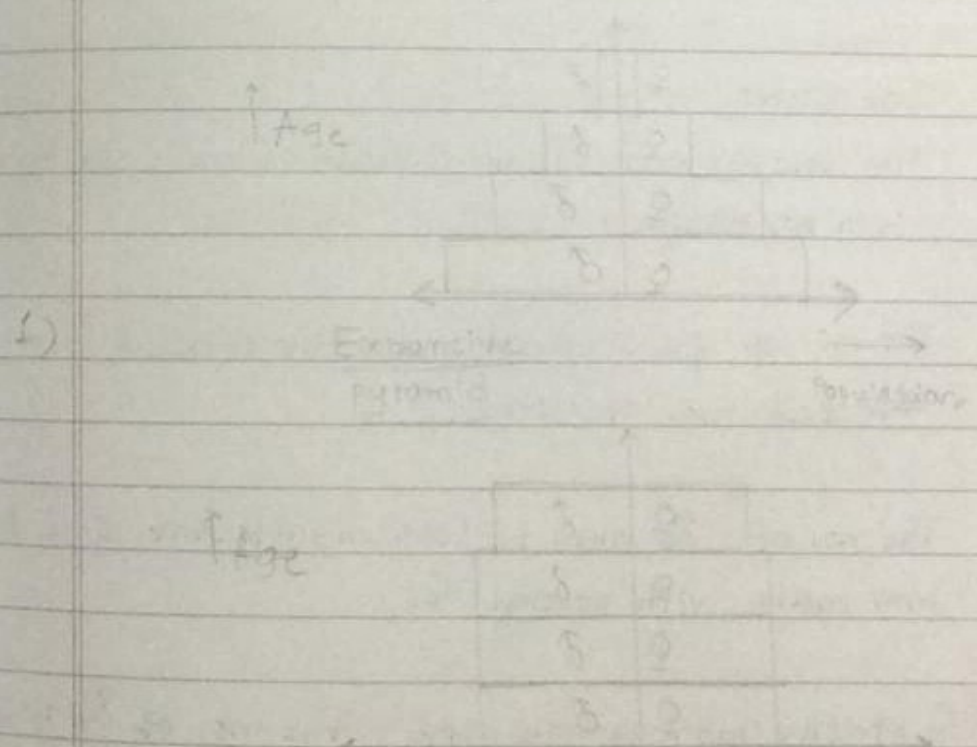 ↑ Age
♂ ♀
♂ ♀
♂ ♀
♂ ♀
1)
Expansive
pyramid
Population
↑ Age
♂ ♀
♂ ♀
♂ ♀
♂ ♀